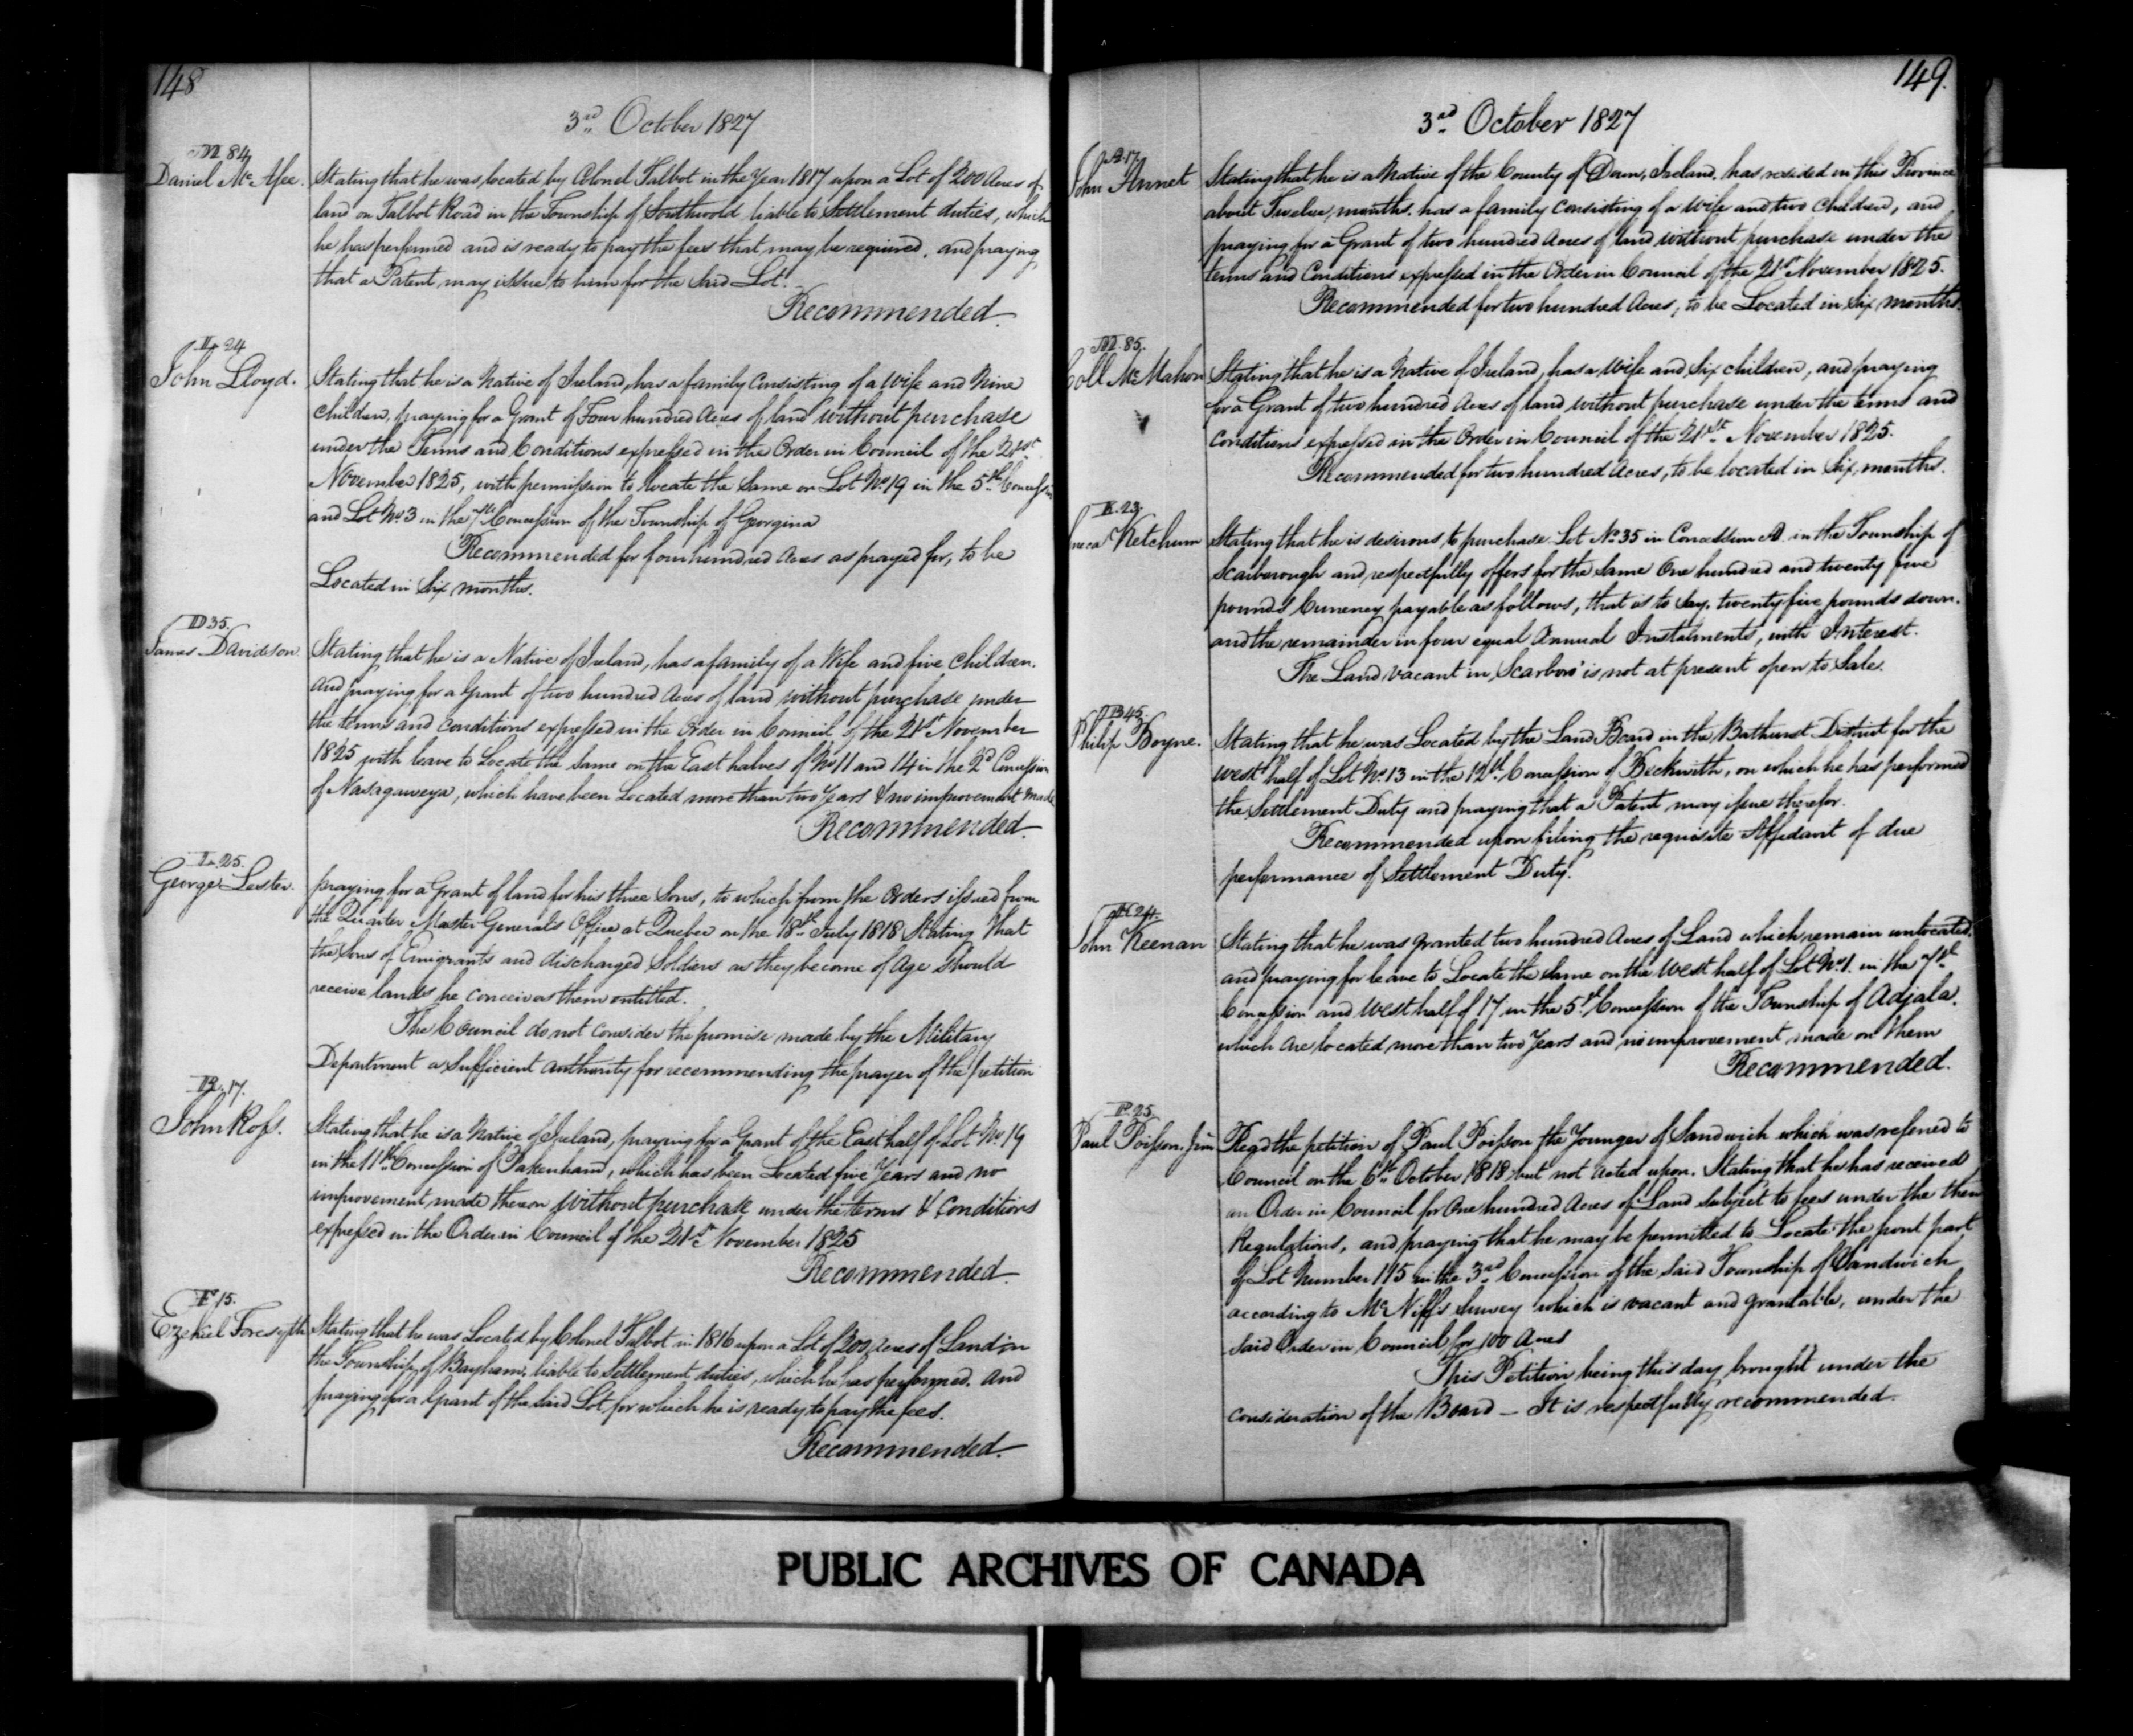 148
3rd October 1827
M 84
Daniel McAfee
Stating that he was located by Colonel Talbot in the Year 1817 upon a Lot of 200 Acres of
land on Talbot Road in the Township of Southwold liable to Settlement duties, which
he has performed and is ready to pay the fees that may be required, and praying
that a Patent may issue to him for the said Lot.
Recommended.
L. 24
John Lloyd.
Stating that he is a Native of Ireland, has a family Consisting of a Wife and Nine
Children, praying for a Grant of Four hundred Acres of land without purchase
under the Terms and Conditions expressed in the Order in Council of the 21st
November 1825, with permission to locate the Same on Lot No. 19 in the 5th Concession
and Lot No. 3 in the 7th Concession of the Township of Georgina
Recommended for four hundred Acres as prayed for, to be
Located in Six months.
D 35.
James Davidson
Stating that he is a Native of Ireland, has a family of a Wife and five Children.
and praying for a Grant of two hundred Acres of land without purchase under
the terms and conditions expressed in the Order in Council of the 21st November
1825 with leave to Locate the Same on the East halves of No 11 and 14 in the 2d Concession
of Nasagaweya, which have been Located more than two Years & no improvement made
Recommended.
L. 25.
George Lester.
praying for a Grant of land for his three Sons, to which from the Orders issued from
the Quarter Master Generals Office at Quebec on the 18th July 1818 Stating that
the Sons of Emigrants and discharged Soldiers as they become of Age Should
receive lands he conceives them entitled.
The Council do not consider the promise made by the Military
Department a Sufficient authority for recommending the prayer of the petition
R. 17.
John Ross.
Stating that he is a Native of Ireland, praying for a Grant of the East half of Lot No. 19
in the 11th Concession of Pakenham, which has been Located five Years and no
improvement made thereon without purchase under the terms & Conditions
expressed in the Order in Council of the 21st November 1825
Recommended.
F 15.
Ezekiel Foresyth
Stating that he was Located by Colonel Talbot in 1816 upon a Lot of 200 Acres of Land in
the Township of Bayham, liable to Settlement duties, which he has performed. and
praying for a Grant of the Said Lot, for which he is ready to pay the fees.
Recommended.
149.
3rd October 1827
A. 17.
John Annet
Stating that he is a Native of the County of Down, Ireland. has resided in this Province
about Twelve months. has a family Consisting of a Wife and two Children, and
praying for a Grant of two hundred Acres of land without purchase under the
terms and Conditions expressed in the Order in Council of the 21st November 1825.
Recommended for two hundred Acres, to be Located in Six months.
M. 85.
Coll McMahon
Stating that he is a Native of Ireland, has a Wife and Six children, and praying
for a Grant of two hundred Acres of land without purchase under the terms and
conditions expressed in the Order in Council of the 21st November 1825.
Recommended for two hundred Acres, to be located in Six months.
K. 23.
Ketchum
Stating that he is desirous to purchase Lot No. 35 in Concession A in the Township of
Scarborough and respectfully offers for the Same One hundred and twenty five
pounds Currency payable as follows, that is to Say, twenty five pounds down.
and the remainder in four equal Annual Instalments, with Interest.
The Land vacant in Scarboro' is not at present open to Sale.
B 45
Philip Boyne.
Stating that he was Located by the Land Board in the Bathurst District for the
West half of Lot No. 13 in the 12th Concession of Beckwith, on which he has performed
the Settlement Duty and praying that a Patent may issue therefor.
Recommended upon filing the requisite Affidavit of due
performance of Settlement Duty.
K 24.
John Keenan
Stating that he was granted two hundred Acres of Land which remain unlocated.
and praying for leave to Locate the Same on the West half of Lot No. 1. in the 7th
Concession and West half of 17 in the 5th Concession of the Township of Adjala.
which are located more than two Years and no improvement made on them
Recommended.
P. 25
Paul Poisson Junr
Read the petition of Paul Poisson the Younger of Sandwich which was referred to
Council on the 6th October 1818 but not acted upon. Stating that he has received
an Order in Council for One hundred Acres of Land subject to fees under the then
Regulations, and praying that he may be permitted to Locate the front part
of Lot Number 115 in the 3rd Concession of the said Township of Sandwich
according to McNiff's Survey which is vacant and grantable, under the
Said Order in Council for 100 Acres
This Petition being this day brought under the
consideration of the Board — It is respectfully recommended.
PUBLIC ARCHIVES OF CANADA